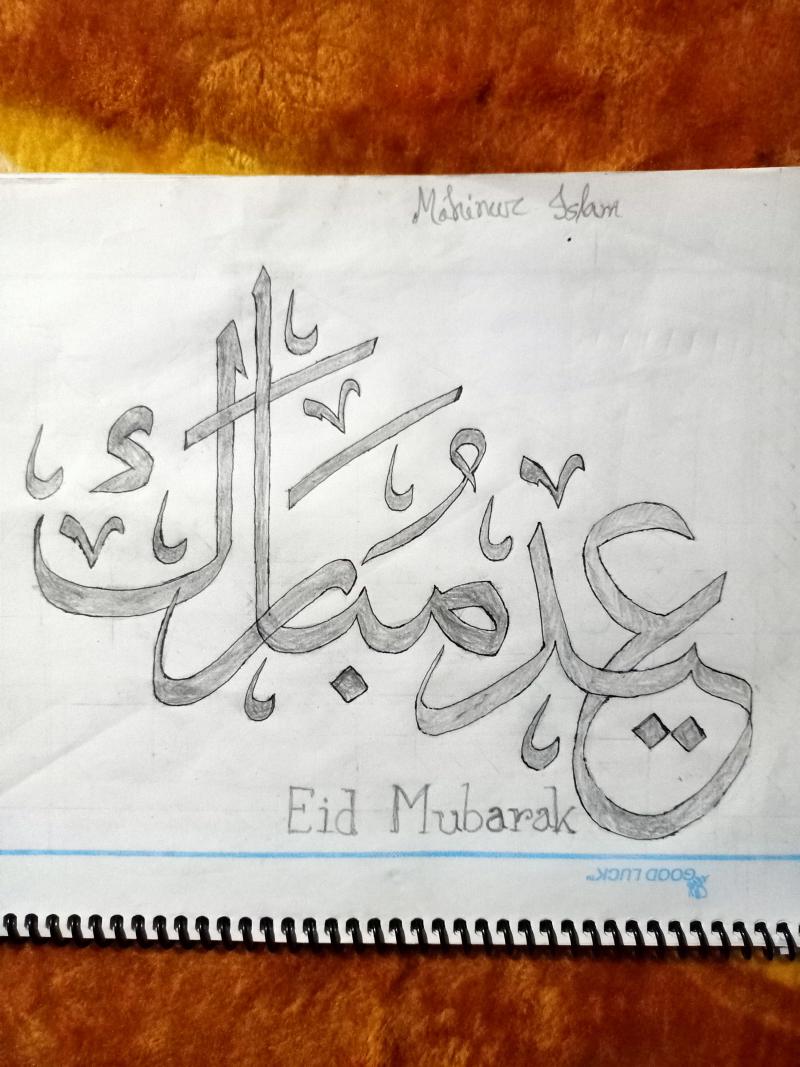 Mahinur Islam
عيد مُبارك
Eid Mubarak
GOOD LUCK™